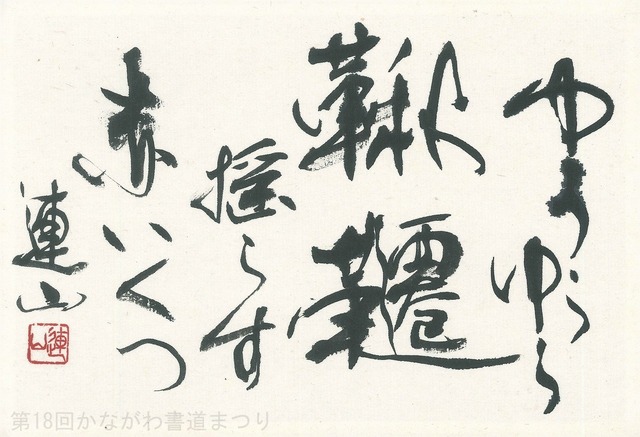 ゆうらゆら
鞦韆
揺らす
赤いくつ
連山
連山
第18回かながわ書道まつり